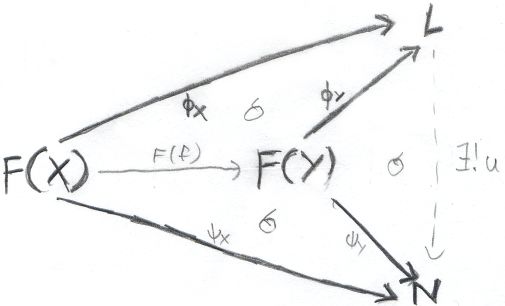 L
ϕX
ϕY
σ
F(X)
F(f)
F(Y)
σ
∃!u
σ
ψX
ψY
N